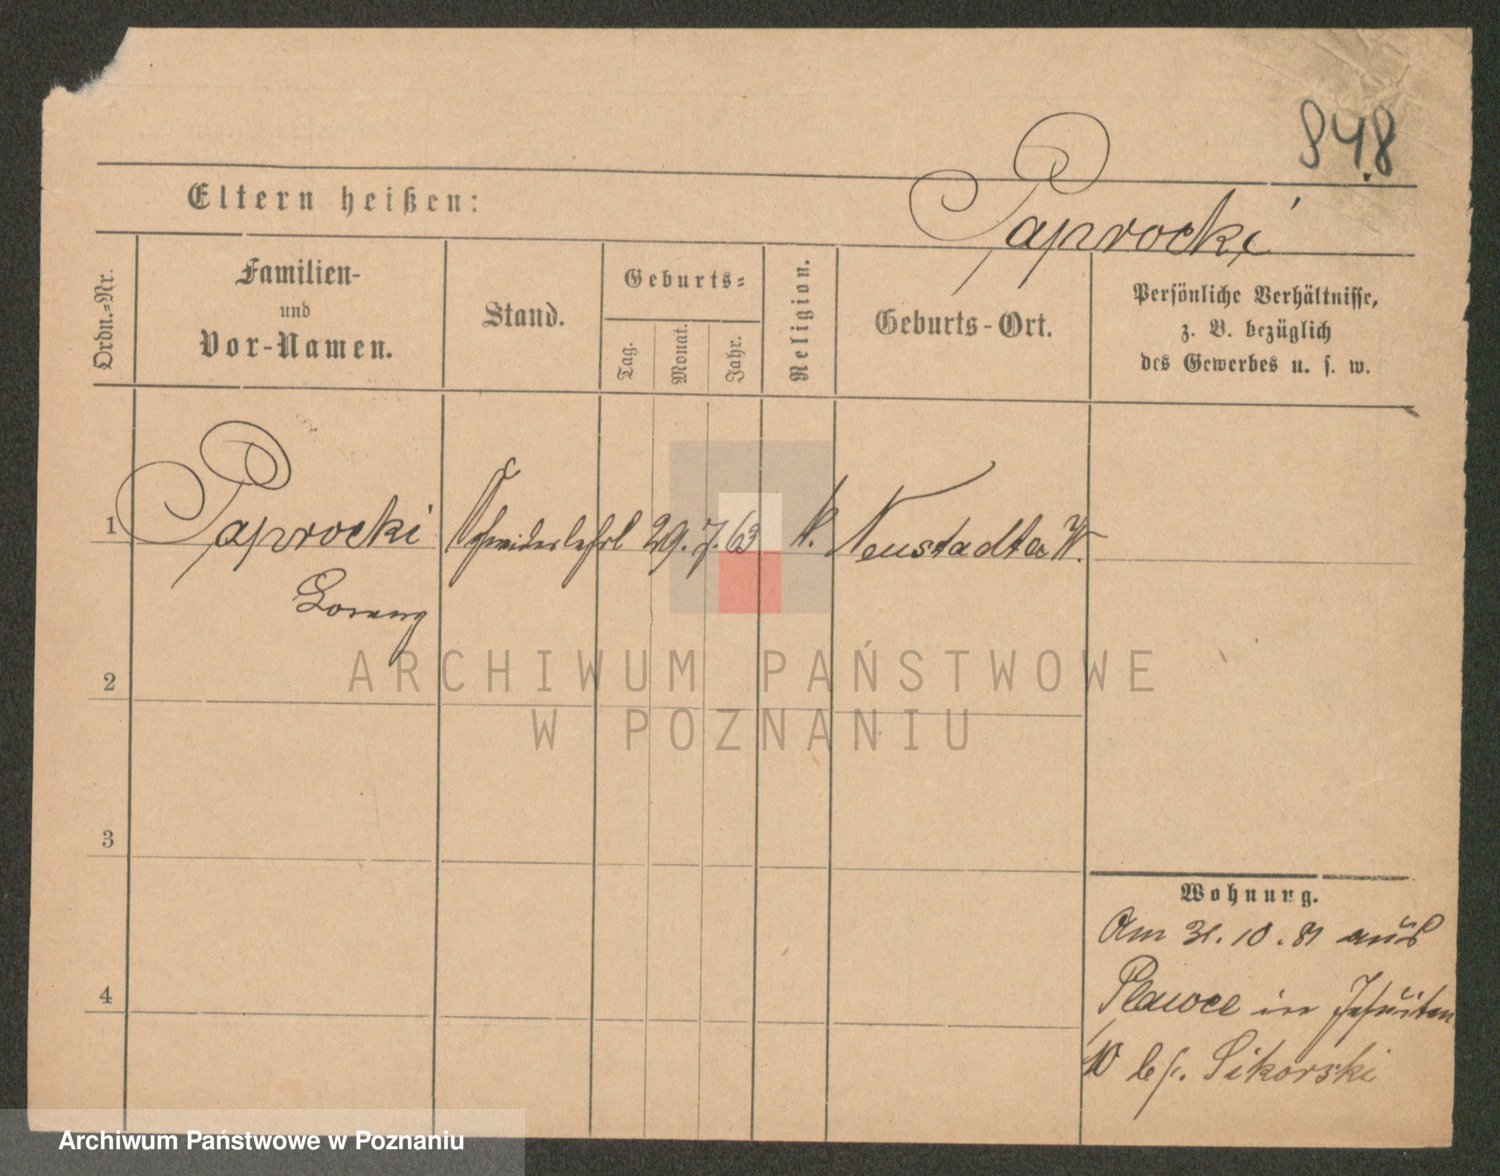 84.8
Eltern heißen:
Paprocki
Ordn.-Nr.
Familien-
und
Vor-Namen.
Stand.
Geburts-
Tag.
Monat.
Jahr.
Religion.
Geburts-Ort.
Persönliche Verhältnisse,
z. B. bezüglich
des Gewerbes u. s. w.
1 Paprocki Schneiderlehrl 29. 7. 63 k. Neustadt a W.
Lorenz
2
3
4
Wohnung.
Am 31. 10. 81 aus
Plawce in Jesuiten
10 bei Sikorski
ARCHIWUM PAŃSTWOWE
W POZNANIU
Archiwum Państwowe w Poznaniu